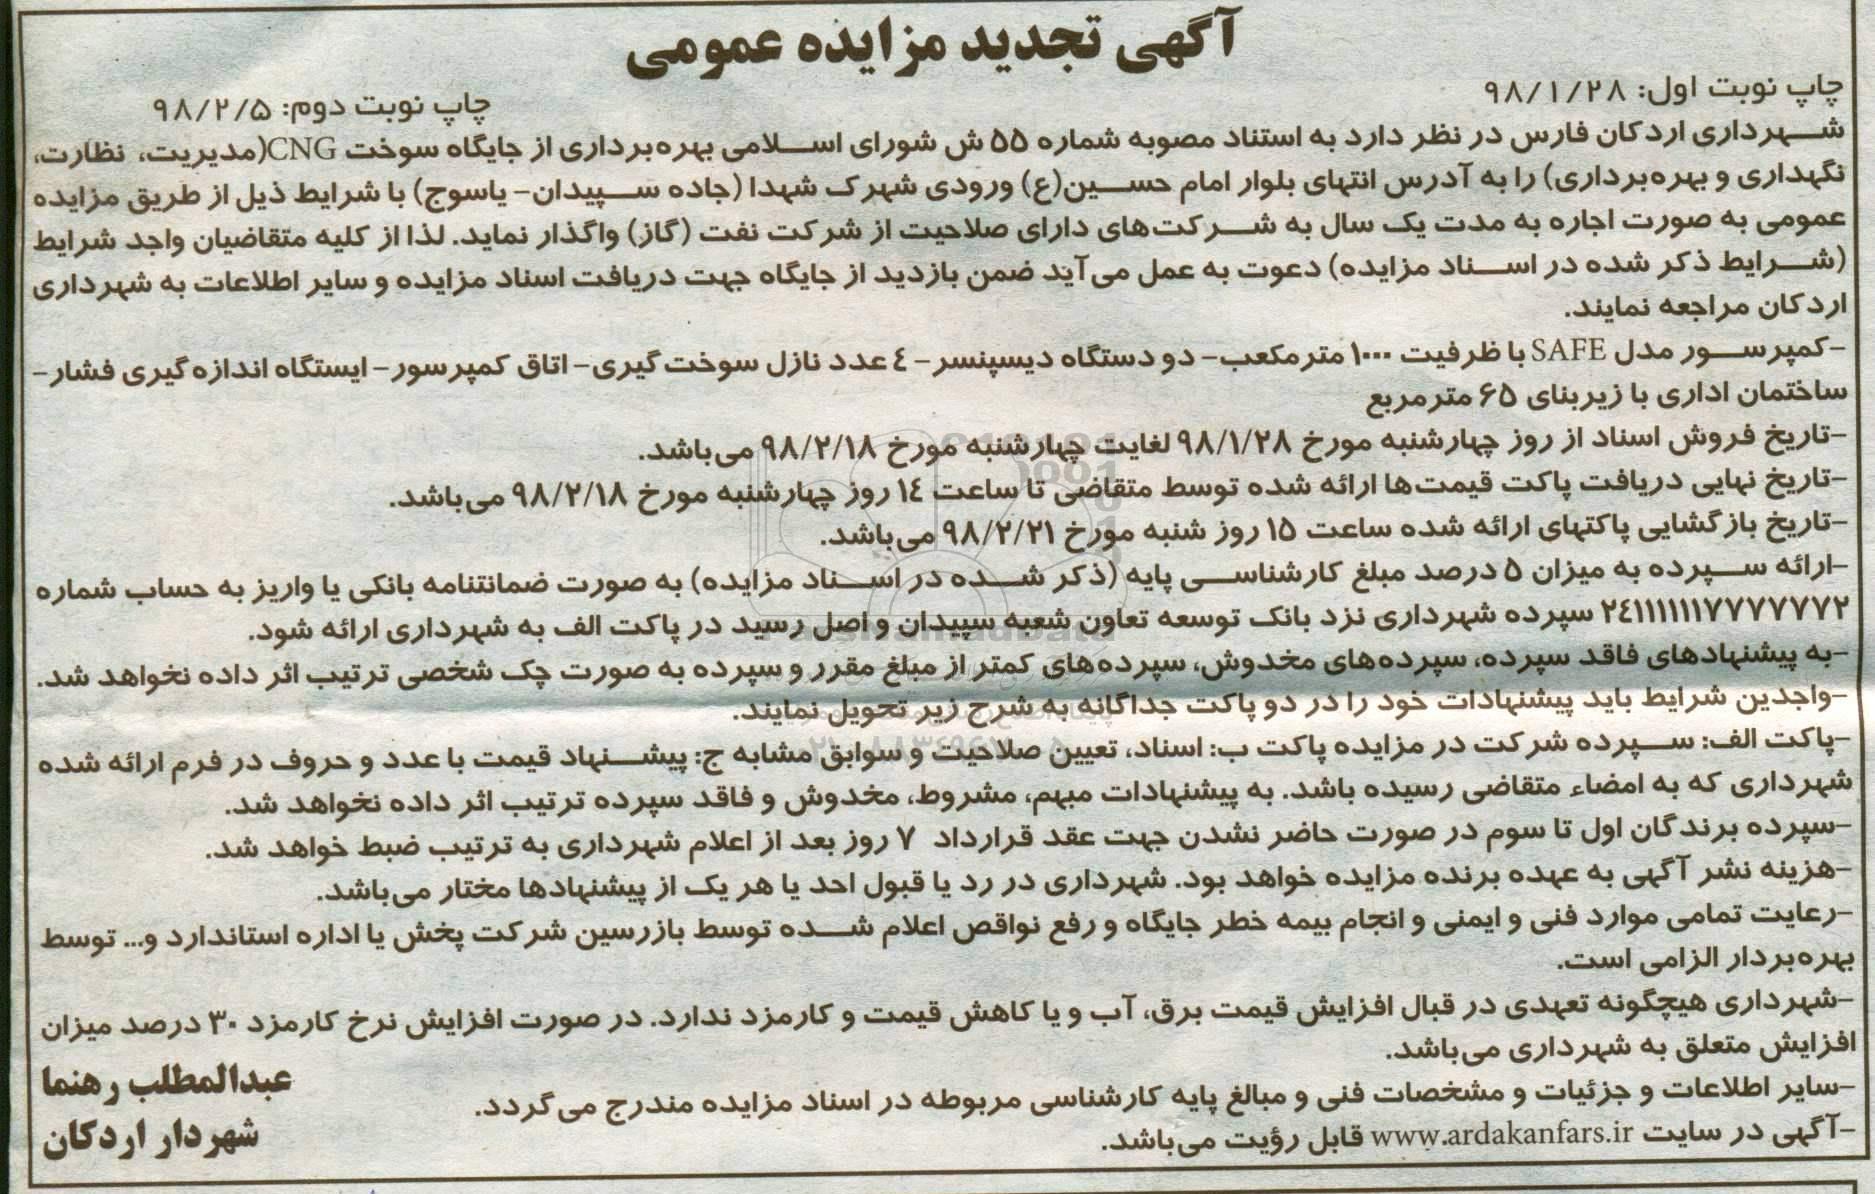 آگهی تجدید مزایده عمومی
چاپ نوبت اول: ۹۸/۱/۲۸
چاپ نوبت دوم: ۹۸/۲/۵
شهرداری اردکان فارس در نظر دارد به استناد مصوبه شماره ۵۵ ش شورای اسلامی بهره‌برداری از جایگاه سوخت CNG(مدیریت، نظارت،
نگهداری و بهره‌برداری) را به آدرس انتهای بلوار امام حسین(ع) ورودی شهرک شهدا (جاده سپیدان- یاسوج) با شرایط ذیل از طریق مزایده
عمومی به صورت اجاره به مدت یک سال به شرکت‌های دارای صلاحیت از شرکت نفت (گاز) واگذار نماید. لذا از کلیه متقاضیان واجد شرایط
(شرایط ذکر شده در اسناد مزایده) دعوت به عمل می‌آید ضمن بازدید از جایگاه جهت دریافت اسناد مزایده و سایر اطلاعات به شهرداری
اردکان مراجعه نمایند.
-کمپرسور مدل SAFE با ظرفیت ۱۰۰۰ مترمکعب- دو دستگاه دیسپنسر- ٤ عدد نازل سوخت‌گیری- اتاق کمپرسور- ایستگاه اندازه‌گیری فشار-
ساختمان اداری با زیربنای ۶۵ مترمربع
-تاریخ فروش اسناد از روز چهارشنبه مورخ ۹۸/۱/۲۸ لغایت چهارشنبه مورخ ۹۸/۲/۱۸ می‌باشد.
-تاریخ نهایی دریافت پاکت قیمت‌ها ارائه شده توسط متقاضی تا ساعت ۱٤ روز چهارشنبه مورخ ۹۸/۲/۱۸ می‌باشد.
-تاریخ بازگشایی پاکتهای ارائه شده ساعت ۱۵ روز شنبه مورخ ۹۸/۲/۲۱ می‌باشد.
-ارائه سپرده به میزان ۵ درصد مبلغ کارشناسی پایه (ذکر شده در اسناد مزایده) به صورت ضمانتنامه بانکی یا واریز به حساب شماره
سپرده شهرداری نزد بانک توسعه تعاون شعبه سپیدان و اصل رسید در پاکت الف به شهرداری ارائه شود.
-به پیشنهادهای فاقد سپرده، سپرده‌های مخدوش، سپرده‌های کمتر از مبلغ مقرر و سپرده به صورت چک شخصی ترتیب اثر داده نخواهد شد.
-واجدین شرایط باید پیشنهادات خود را در دو پاکت جداگانه به شرح زیر تحویل نمایند.
-پاکت الف: سپرده شرکت در مزایده پاکت ب: اسناد، تعیین صلاحیت و سوابق مشابه ج: پیشنهاد قیمت با عدد و حروف در فرم ارائه شده
شهرداری که به امضاء متقاضی رسیده باشد. به پیشنهادات مبهم، مشروط، مخدوش و فاقد سپرده ترتیب اثر داده نخواهد شد.
-سپرده برندگان اول تا سوم در صورت حاضر نشدن جهت عقد قرارداد ۷ روز بعد از اعلام شهرداری به ترتیب ضبط خواهد شد.
-هزینه نشر آگهی به عهده برنده مزایده خواهد بود. شهرداری در رد یا قبول احد یا هر یک از پیشنهادها مختار می‌باشد.
-رعایت تمامی موارد فنی و ایمنی و انجام بیمه خطر جایگاه و رفع نواقص اعلام شده توسط بازرسین شرکت پخش یا اداره استاندارد و... توسط
بهره‌بردار الزامی است.
-شهرداری هیچگونه تعهدی در قبال افزایش قیمت برق، آب و یا کاهش قیمت و کارمزد ندارد. در صورت افزایش نرخ کارمزد ۳۰ درصد میزان
افزایش متعلق به شهرداری می‌باشد.
-سایر اطلاعات و جزئیات و مشخصات فنی و مبالغ پایه کارشناسی مربوطه در اسناد مزایده مندرج می‌گردد.
-آگهی در سایت www.ardakanfars.ir قابل رؤیت می‌باشد.
عبدالمطلب رهنما
شهردار اردکان